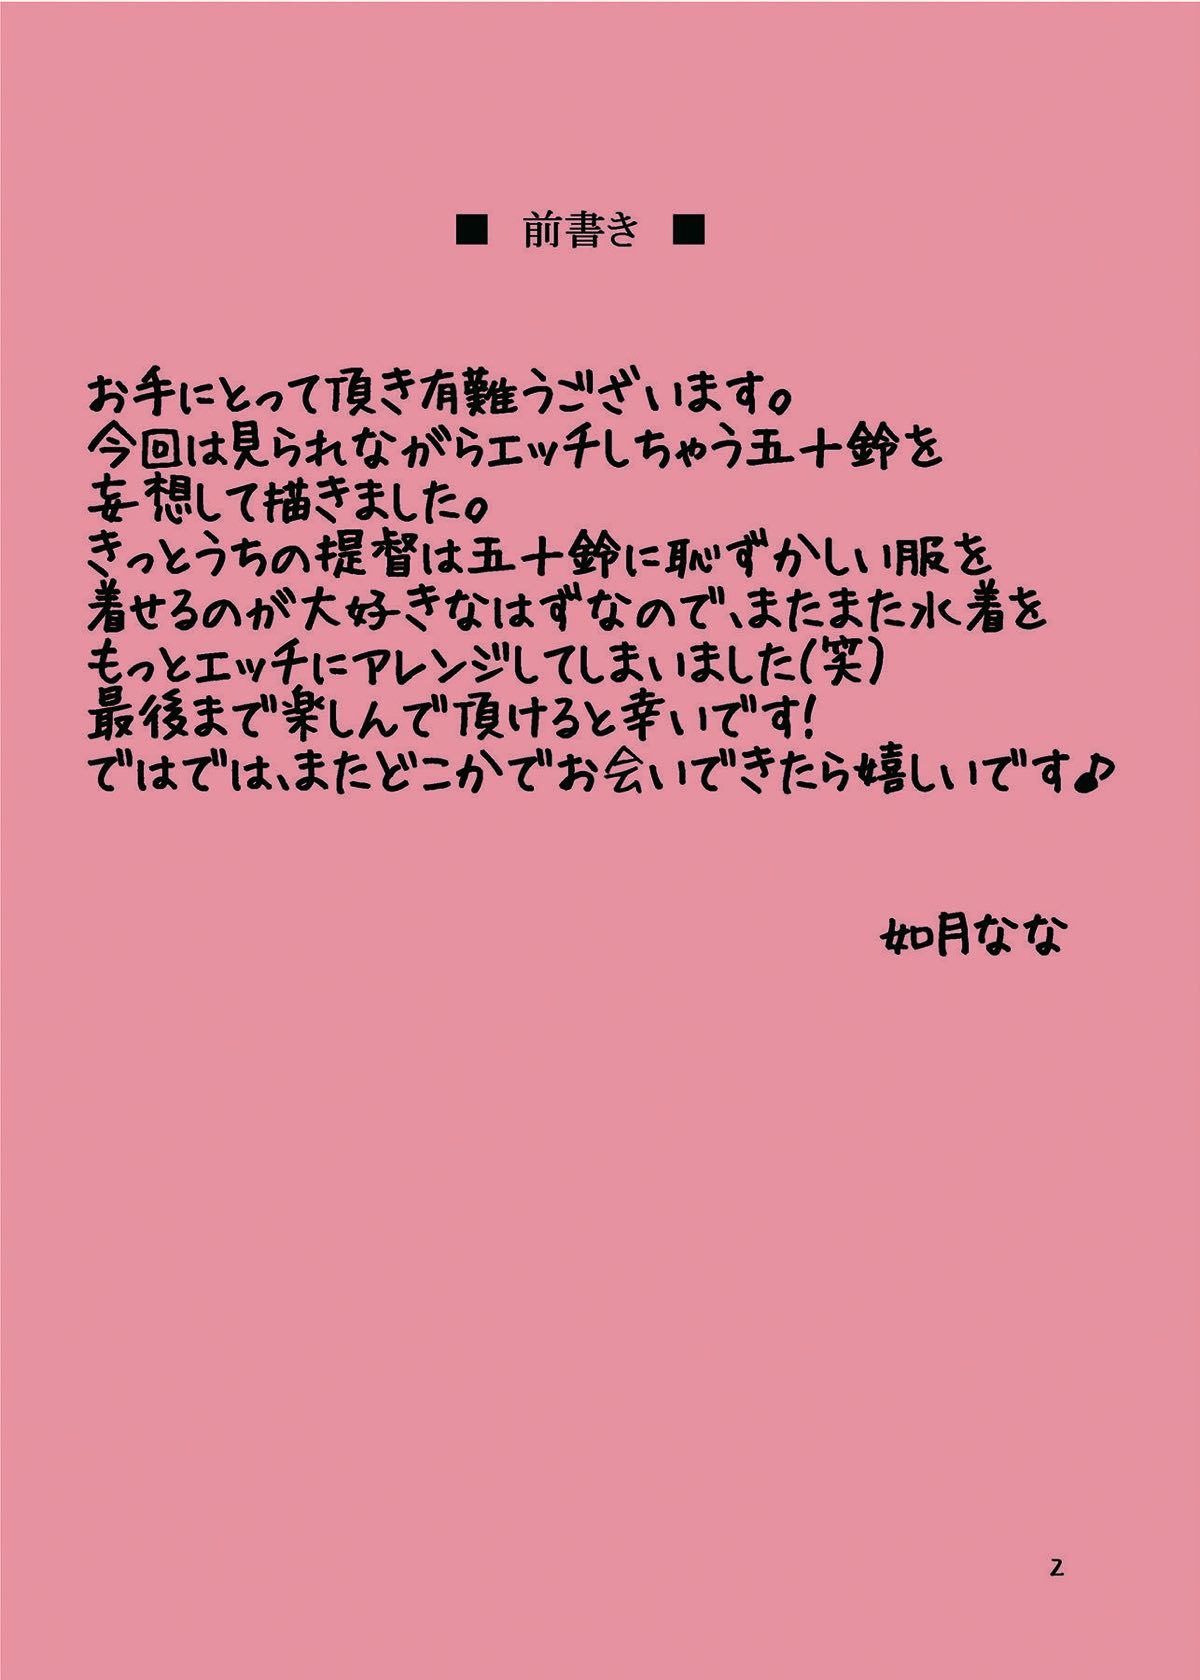 ■ 前書き ■
お手にとって頂き有難うございます。
今回は見られながらエッチしちゃう五十鈴を
妄想して描きました。
きっとうちの提督は五十鈴に恥ずかしい服を
着せるのが大好きなはずなので、またまた水着を
もっとエッチにアレンジしてしまいました(笑)
最後まで楽しんで頂けると幸いです!
ではでは、またどこかでお会いできたら嬉しいです♪
如月なな
2